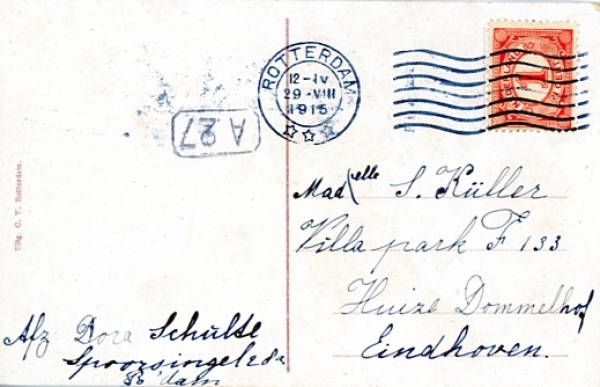 ROTTERDAM
12-IV
29-VIII
1915
A 27
Uitg. C. V. Rotterdam.
Mad elle S. Küller
Villa park F 133
Huize Dommelhof
Eindhoven.
Afz Dora Schülte
Spoorsingel
R'dam